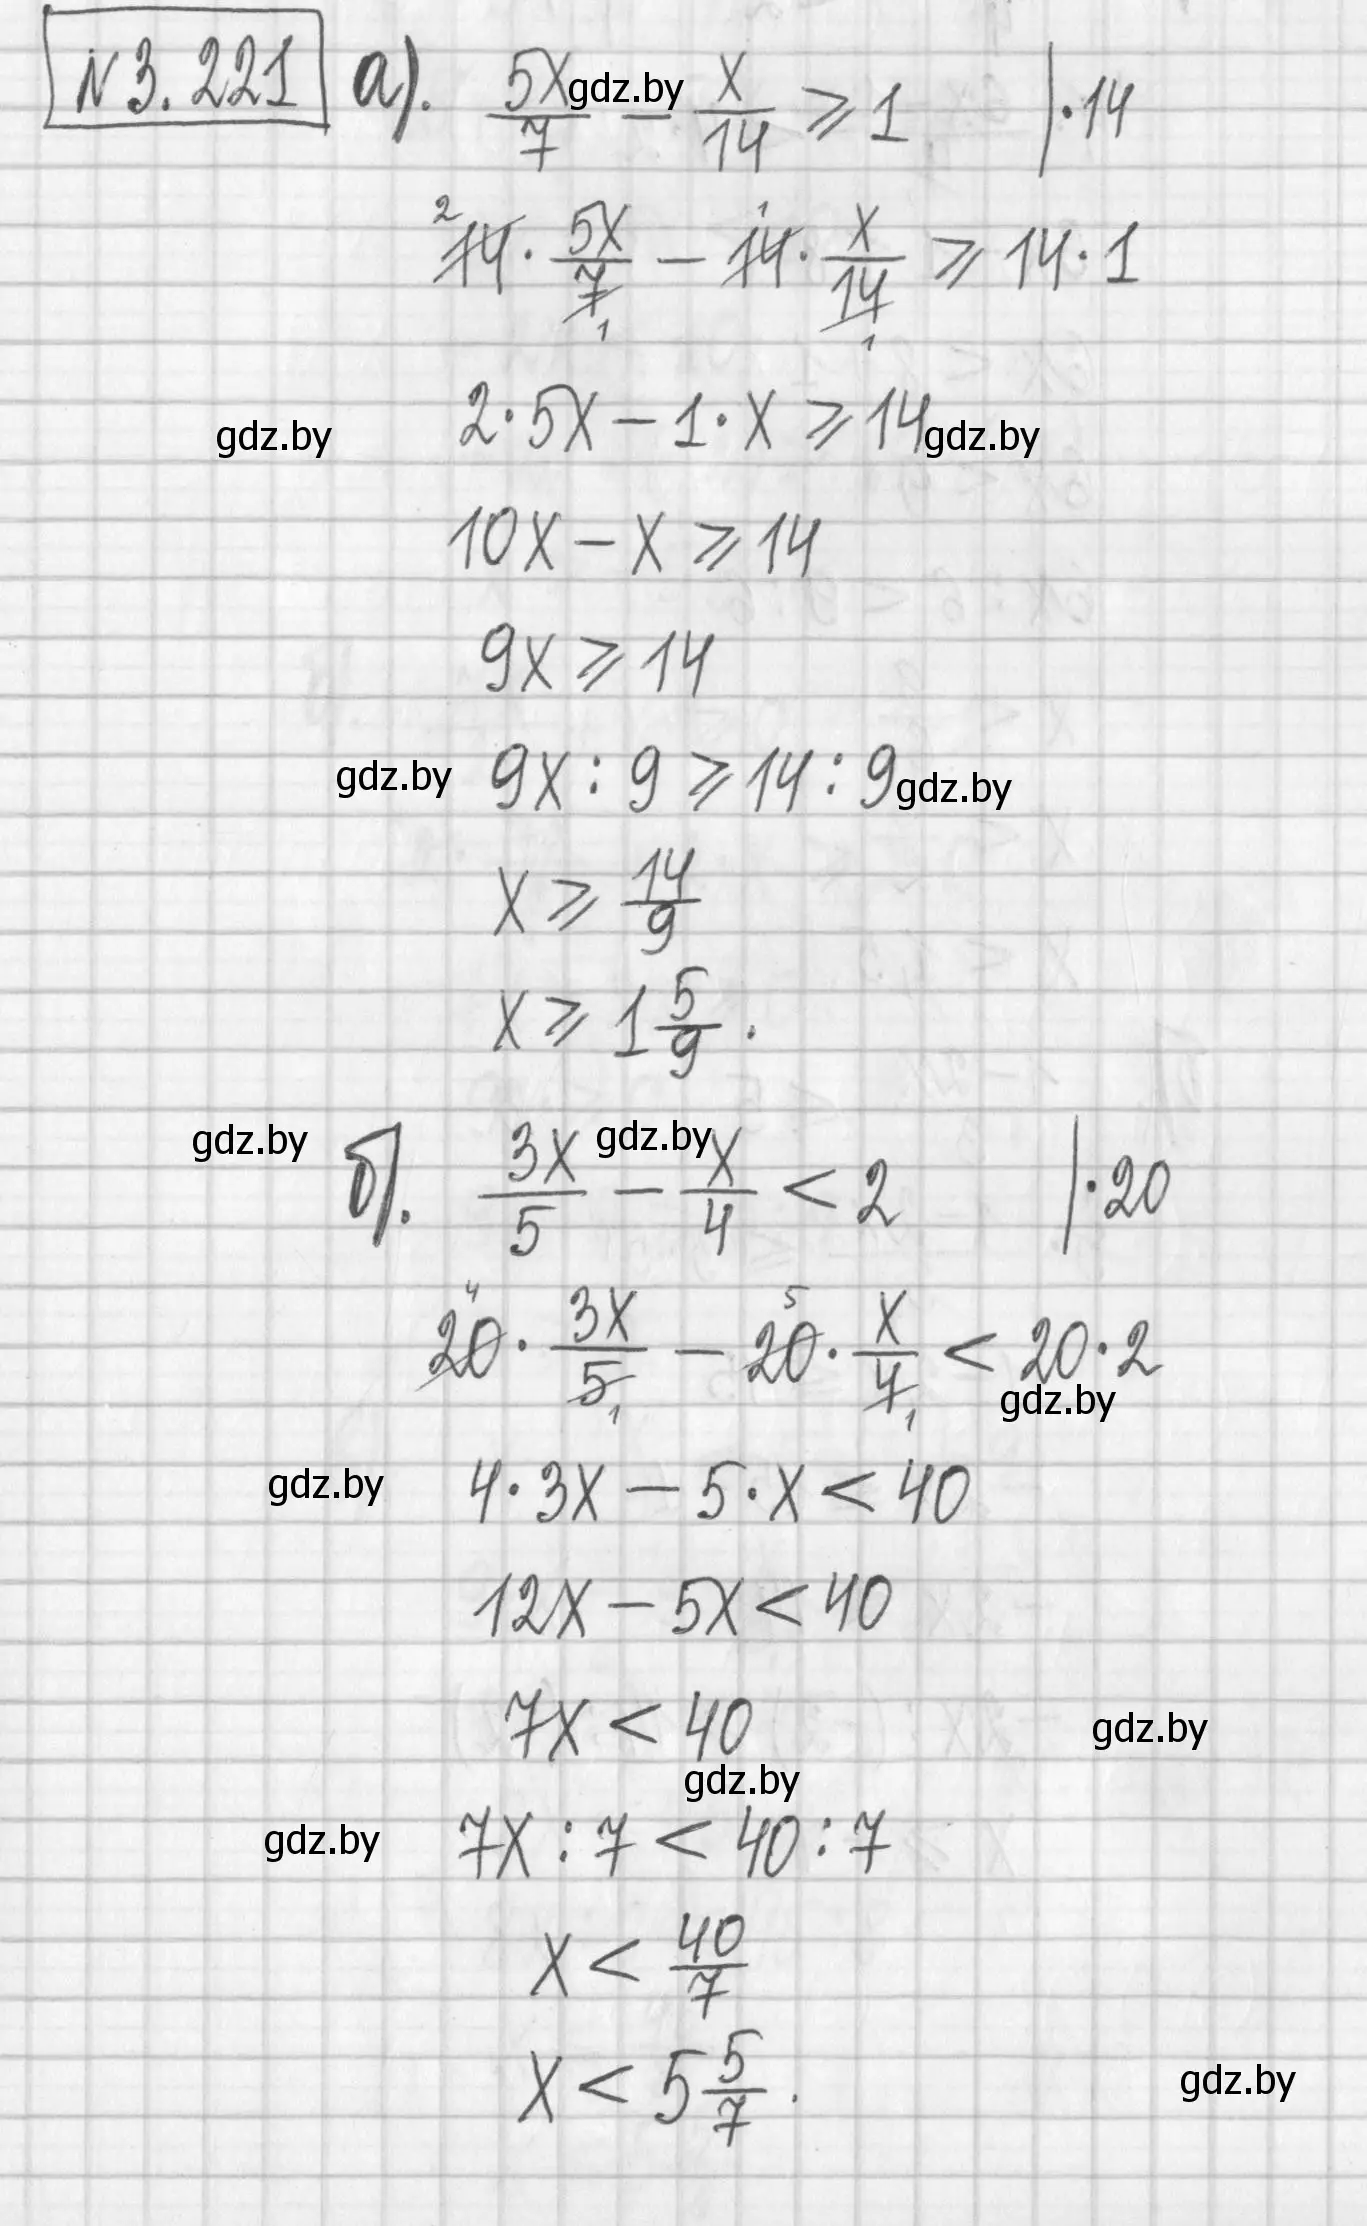 N 3.221 а). 5x/7 - x/14 ⩾ 1 |·14
gdz.by
2 14 · 5x/7 1 - 1 14 · x/14 1 ⩾ 14 · 1
2·5x - 1·x ⩾ 14
gdz.by gdz.by
10x - x ⩾ 14
9x ⩾ 14
9x : 9 ⩾ 14 : 9
gdz.by gdz.by
x ⩾ 14/9
x ⩾ 1 5/9.
gdz.by gdz.by
б). 3x/5 - x/4 < 2 |·20
4 20 · 3x/5 1 - 5 20 · x/4 1 < 20·2
gdz.by
gdz.by
4·3x - 5·x < 40
12x - 5x < 40
7x < 40
gdz.by
gdz.by
gdz.by
7x : 7 < 40 : 7
x < 40/7
x < 5 5/7.
gdz.by